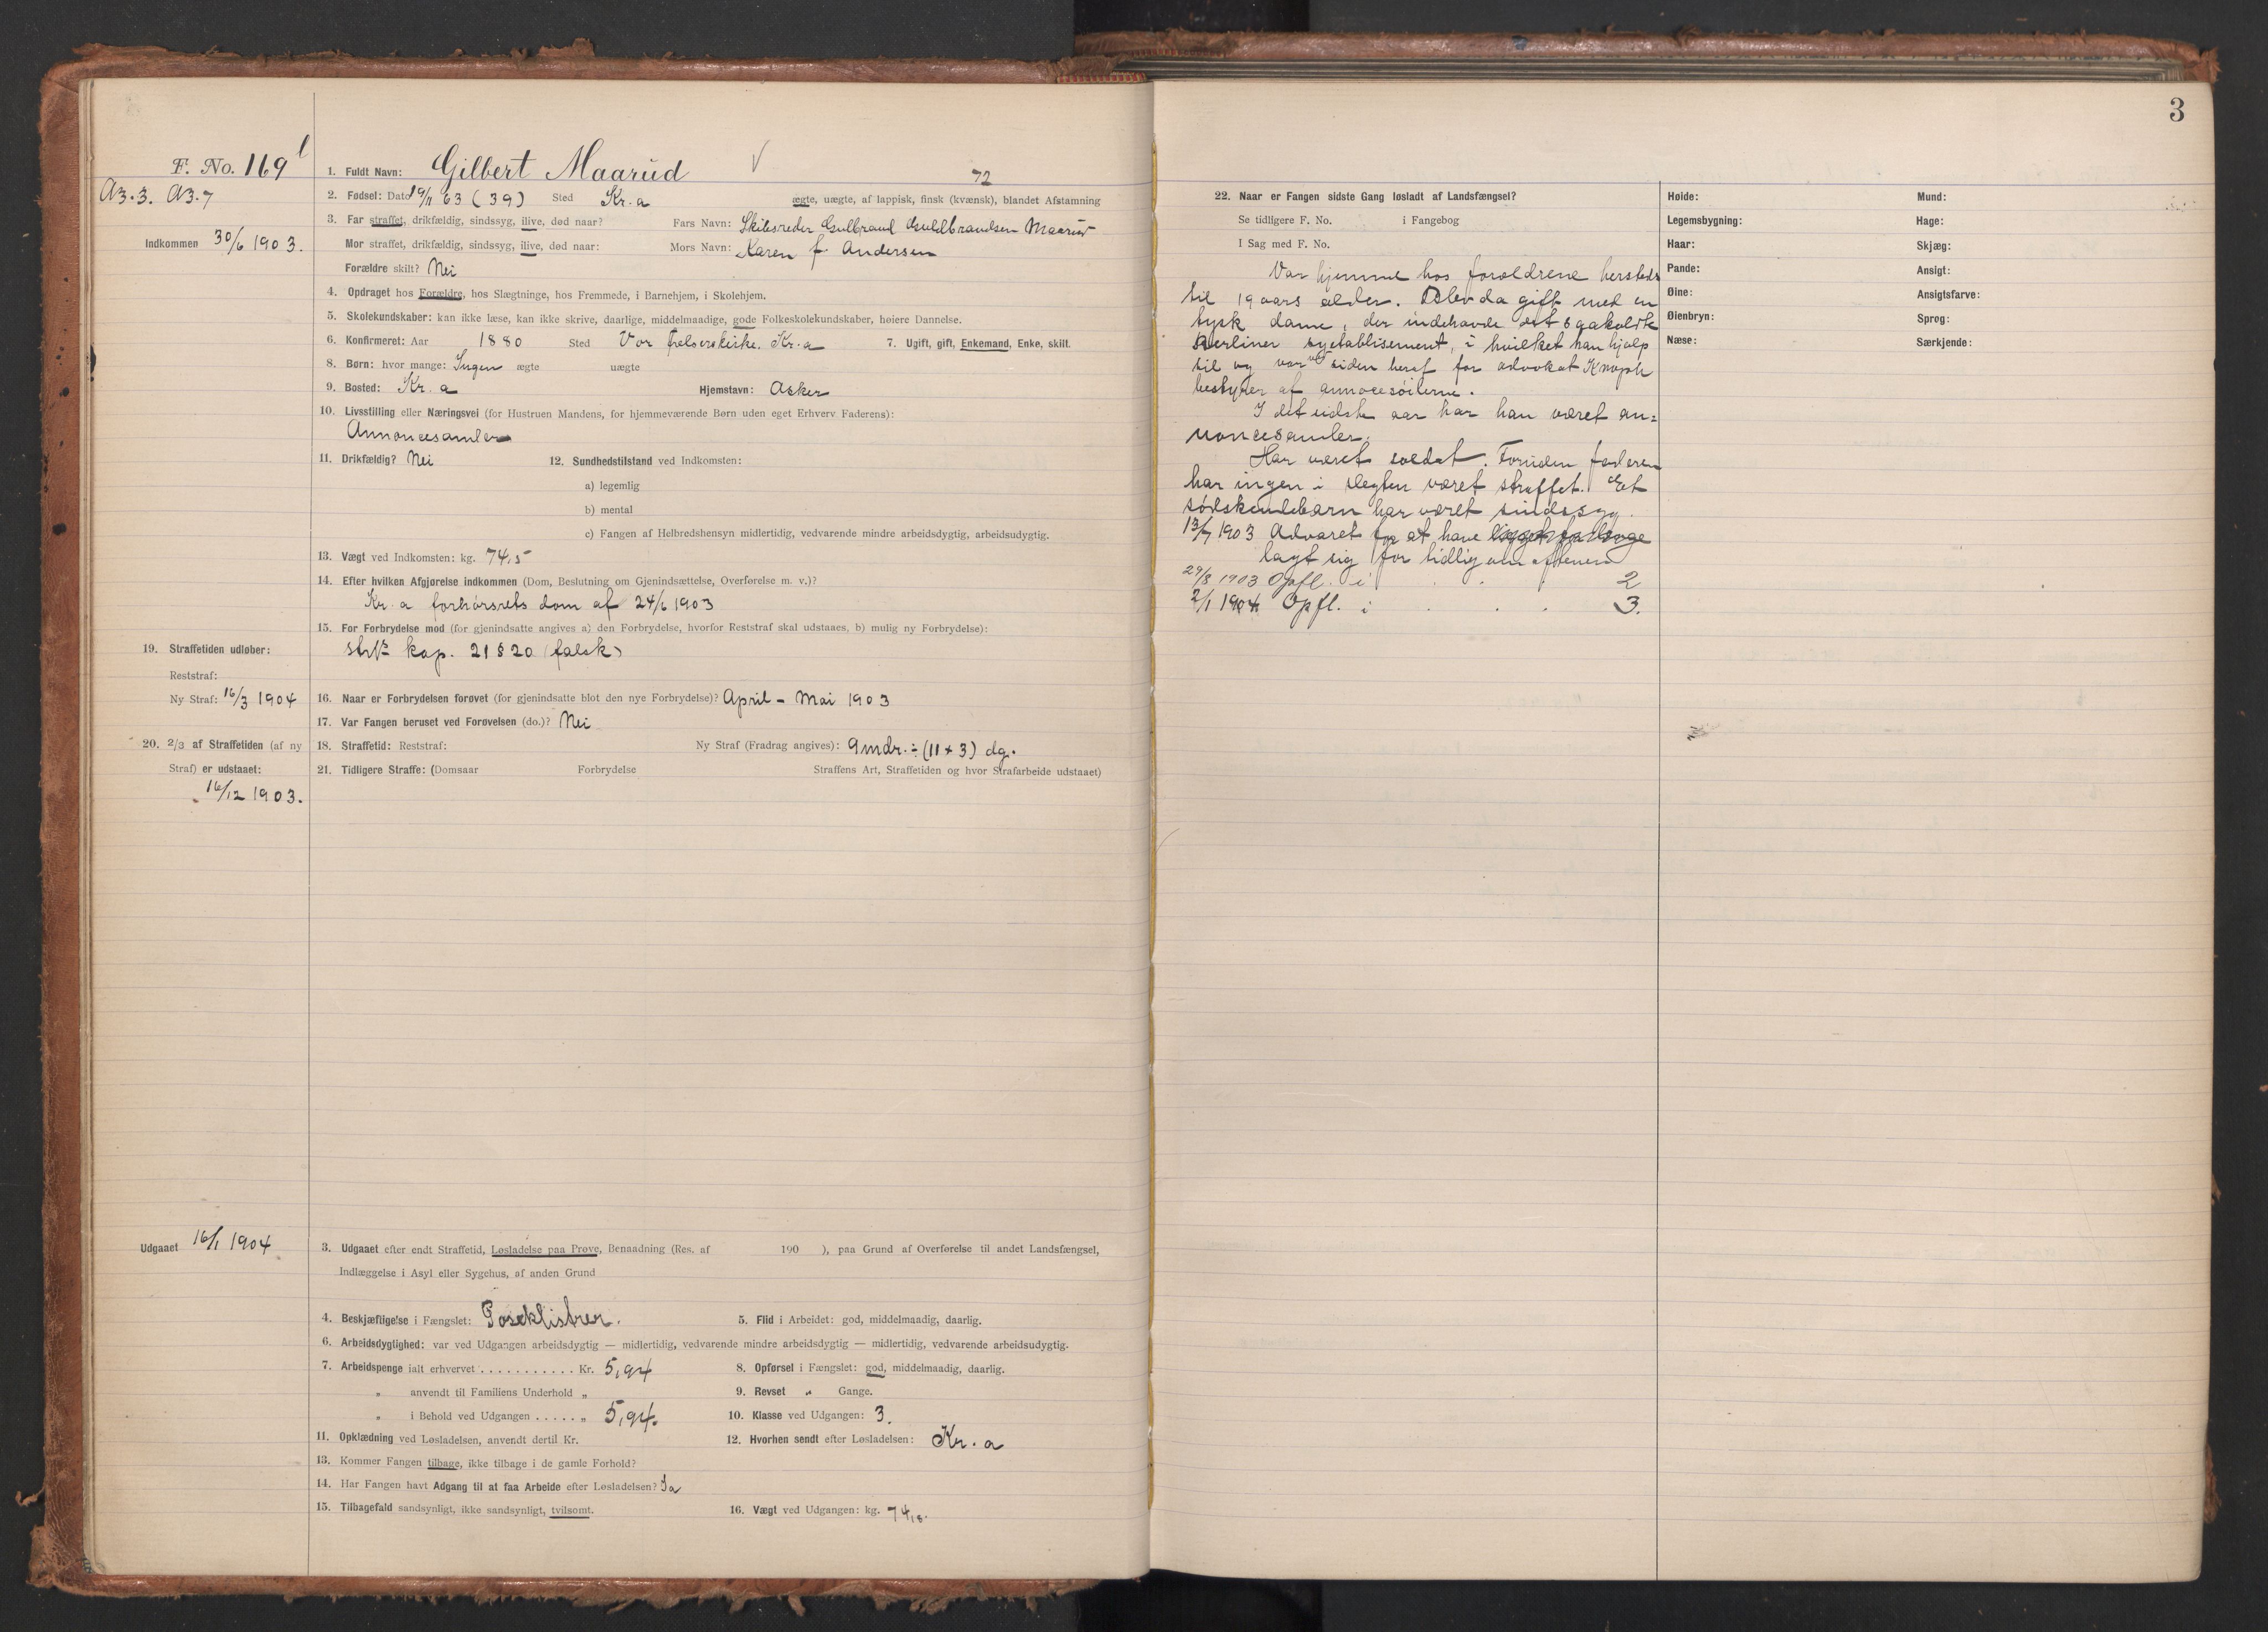 3
F. No. 169
A3.3. A3.7
Indkommen 30/6 1903.
1. Fuldt Navn: Gilbert Maarud
72
2. Fødsel: Dato 19/11 63 (39) Sted Kr.a ægte, uægte, af lappisk, finsk (kvænsk), blandet Afstamning
3. Far straffet, drikfældig, sindssyg, ilive, død naar? Fars Navn: Skibsreder Gulbrand Guldbrandsen Maarud
Mor straffet, drikfældig, sindssyg, ilive, død naar: Mors Navn: Karen f. Andersen
Forældre skilt? Nei
4. Opdraget hos Forældre, hos Slægtninge, hos Fremmede, i Barnehjem, i Skolehjem.
5. Skolekundskaber: kan ikke læse, kan ikke skrive, daarlige, middelmaadige, gode Folkeskolekundskaber, høiere Dannelse.
6. Konfirmeret: Aar 1880 Sted Vor frelserskirke. Kr.a 7. Ugift, gift, Enkemand, Enke, skilt.
8. Børn: hvor mange: Ingen ægte uægte
9. Bosted: Kr. a Hjemstavn: Asker
10. Livsstilling eller Næringsvei (for Hustruen Mandens, for hjemmeværende Børn uden eget Erhverv Faderens):
Annoncesamler
11. Drikfældig? Nei 12. Sundhedstilstand ved Indkomsten:
a) legemlig
b) mental
c) Fangen af Helbredshensyn midlertidig, vedvarende mindre arbeidsdygtig, arbeidsudygtig.
13. Vægt ved Indkomsten: kg. 74,5
14. Efter hvilken Afgjørelse indkommen (Dom, Beslutning om Gjenindsættelse, Overførelse m. v.)?
Kr. a forhørsrets dom af 24/6 1903
15. For Forbrydelse mod (for gjenindsatte angives a) den Forbrydelse, hvorfor Reststraf skal udstaaes, b) mulig ny Forbrydelse):
kap. 21 § 20 (falsk)
19. Straffetiden udløber:
Reststraf:
Ny Straf: 16/3 1904
16. Naar er Forbrydelsen forøvet (for gjenindsatte blot den nye Forbrydelse)? April - Mai 1903
17. Var Fangen beruset ved Forøvelsen (do.)? Nei
20. 2/3 af Straffetiden (af ny
Straf) er udstaaet:
16/12 1903.
18. Straffetid: Reststraf: Ny Straf (Fradrag angives): 9 mdr. ÷ (11 + 3) dg.
21. Tidligere Straffe: (Domsaar Forbrydelse Straffens Art, Straffetiden og hvor Strafarbeide udstaaet)
Udgaaet 16/1 1904
3. Udgaaet efter endt Straffetid, Løsladelse paa Prøve, Benaadning (Res. af 190 ), paa Grund af Overførelse til andet Landsfængsel,
Indlæggelse i Asyl eller Sygehus, af anden Grund
4. Beskjæftigelse i Fængslet: Poseklistrer. 5. Flid i Arbeidet: god, middelmaadig, daarlig.
6. Arbeidsdygtighed: var ved Udgangen arbeidsdygtig — midlertidig, vedvarende mindre arbeidsdygtig — midlertidig, vedvarende arbeidsudygtig.
7. Arbeidspenge ialt erhvervet ........... Kr. 5,94 8. Opførsel i Fængslet: god, middelmaadig, daarlig.
„ anvendt til Familiens Underhold „ 9. Revset „ Gange.
„ i Behold ved Udgangen ..... „ 5,94. 10. Klasse ved Udgangen: 3.
11. Opklædning ved Løsladelsen, anvendt dertil Kr. 12. Hvorhen sendt efter Løsladelsen: Kr. a
13. Kommer Fangen tilbage, ikke tilbage i de gamle Forhold?
14. Har Fangen havt Adgang til at faa Arbeide efter Løsladelsen? Ja
15. Tilbagefald sandsynligt, ikke sandsynligt, tvilsomt. 16. Vægt ved Udgangen: kg. 74,8.
22. Naar er Fangen sidste Gang løsladt af Landsfængsel?
Se tidligere F. No. i Fangebog
I Sag med F. No.
Var hjemme hos forældrene hersteds
til 19 aars alder. Blev da gift med en
tysk dame, der indehavde det saakaldte
Berliner syetablisement, i hvilket han hjalp
til og var ved siden heraf for advokat Knoph
bestyrer af annocesøilerne.
I det sidste aar har han været an=
noncesamler.
Har været soldat. Foruden faderen
har ingen i slegten været straffet. Et
sødskendebarn har været sindssyg.
13/7 1903 Advaret for at have ligget for længe
lagt sig for tidlig om aftenen
29/8 1903 Opfl. i . . . 2
2/1 1904 Opfl. i . . . 3.
Høide:
Legemsbygning:
Haar:
Pande:
Øine:
Øienbryn:
Næse:
Mund:
Hage:
Skjæg:
Ansigt:
Ansigtsfarve:
Sprog:
Særkjende: